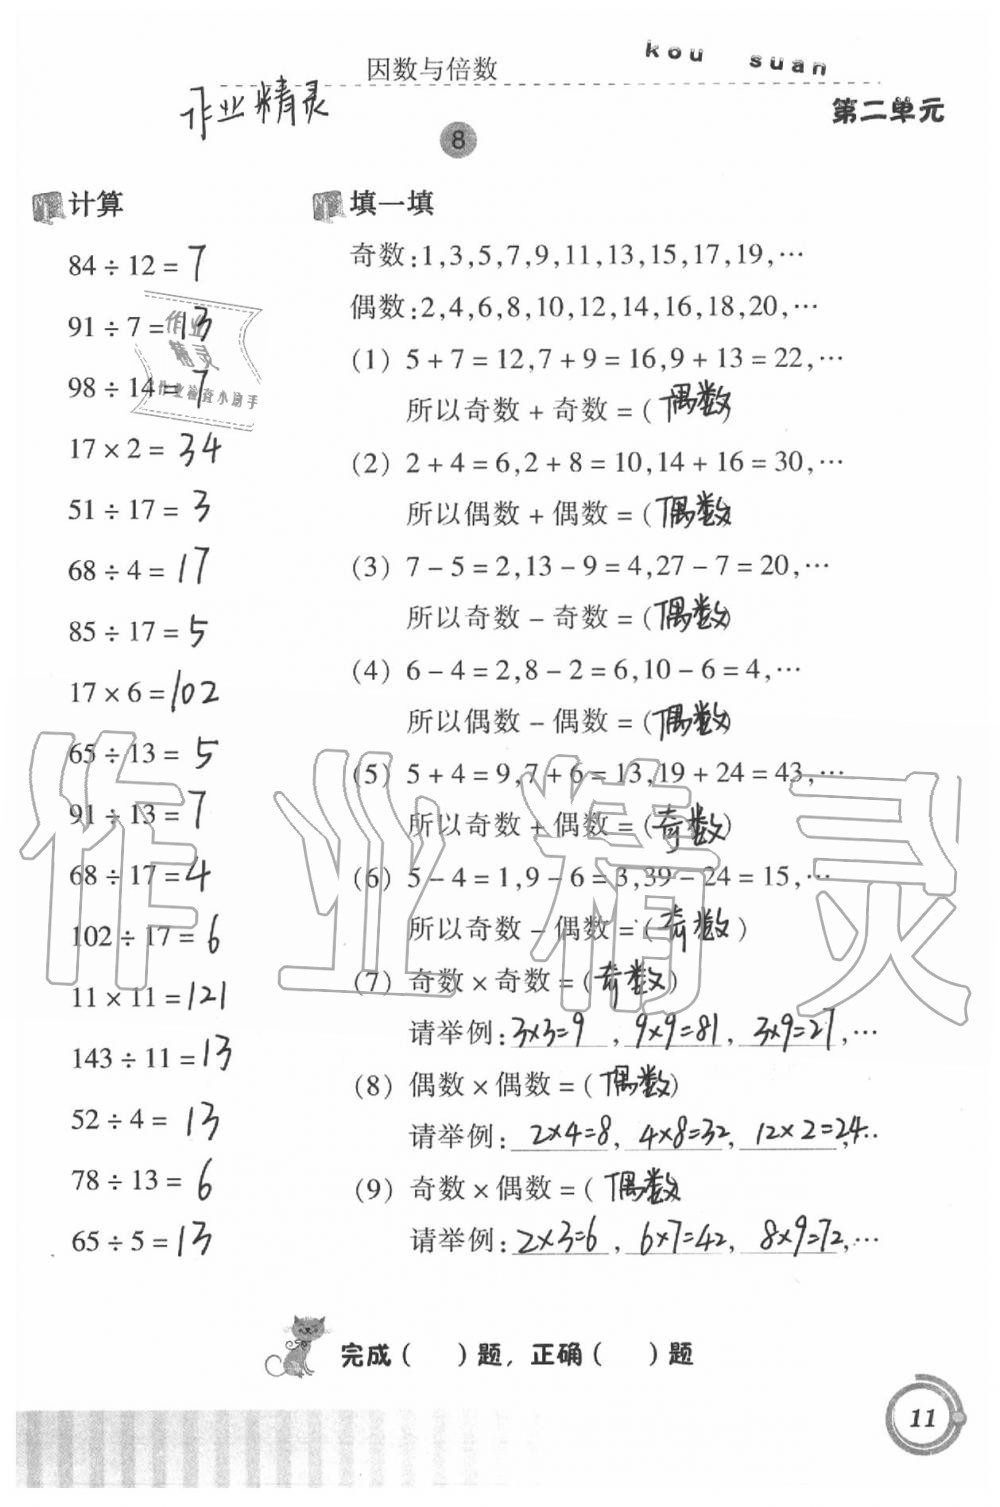 因数与倍数
kou suan
作业精灵
第二单元
8
计算
84÷12=7
91÷7=13
98÷14=7
17×2=34
51÷17=3
68÷4=17
85÷17=5
17×6=102
65÷13=5
91÷13=7
68÷17=4
102÷17=6
11×11=121
143÷11=13
52÷4=13
78÷13=6
65÷5=13
作业
精灵
作业检查小助手
填一填
奇数:1,3,5,7,9,11,13,15,17,19,…
偶数:2,4,6,8,10,12,14,16,18,20,…
(1) 5+7=12,7+9=16,9+13=22,…
所以奇数+奇数=(偶数)
(2) 2+4=6,2+8=10,14+16=30,…
所以偶数+偶数=(偶数)
(3) 7-5=2,13-9=4,27-7=20,…
所以奇数-奇数=(偶数)
(4) 6-4=2,8-2=6,10-6=4,…
所以偶数-偶数=(偶数)
(5) 5+4=9,7+6=13,19+24=43,…
所以奇数+偶数=(奇数)
(6) 5-4=1,9-6=3,39-24=15,…
所以奇数-偶数=(奇数)
(7) 奇数×奇数=(奇数)
请举例:3×3=9, 9×9=81, 3×9=27,…
(8) 偶数×偶数=(偶数)
请举例:2×4=8, 4×8=32, 12×2=24,…
(9) 奇数×偶数=(偶数
请举例:2×3=6, 6×7=42, 8×9=72,…
作业精灵
完成( )题,正确( )题
11